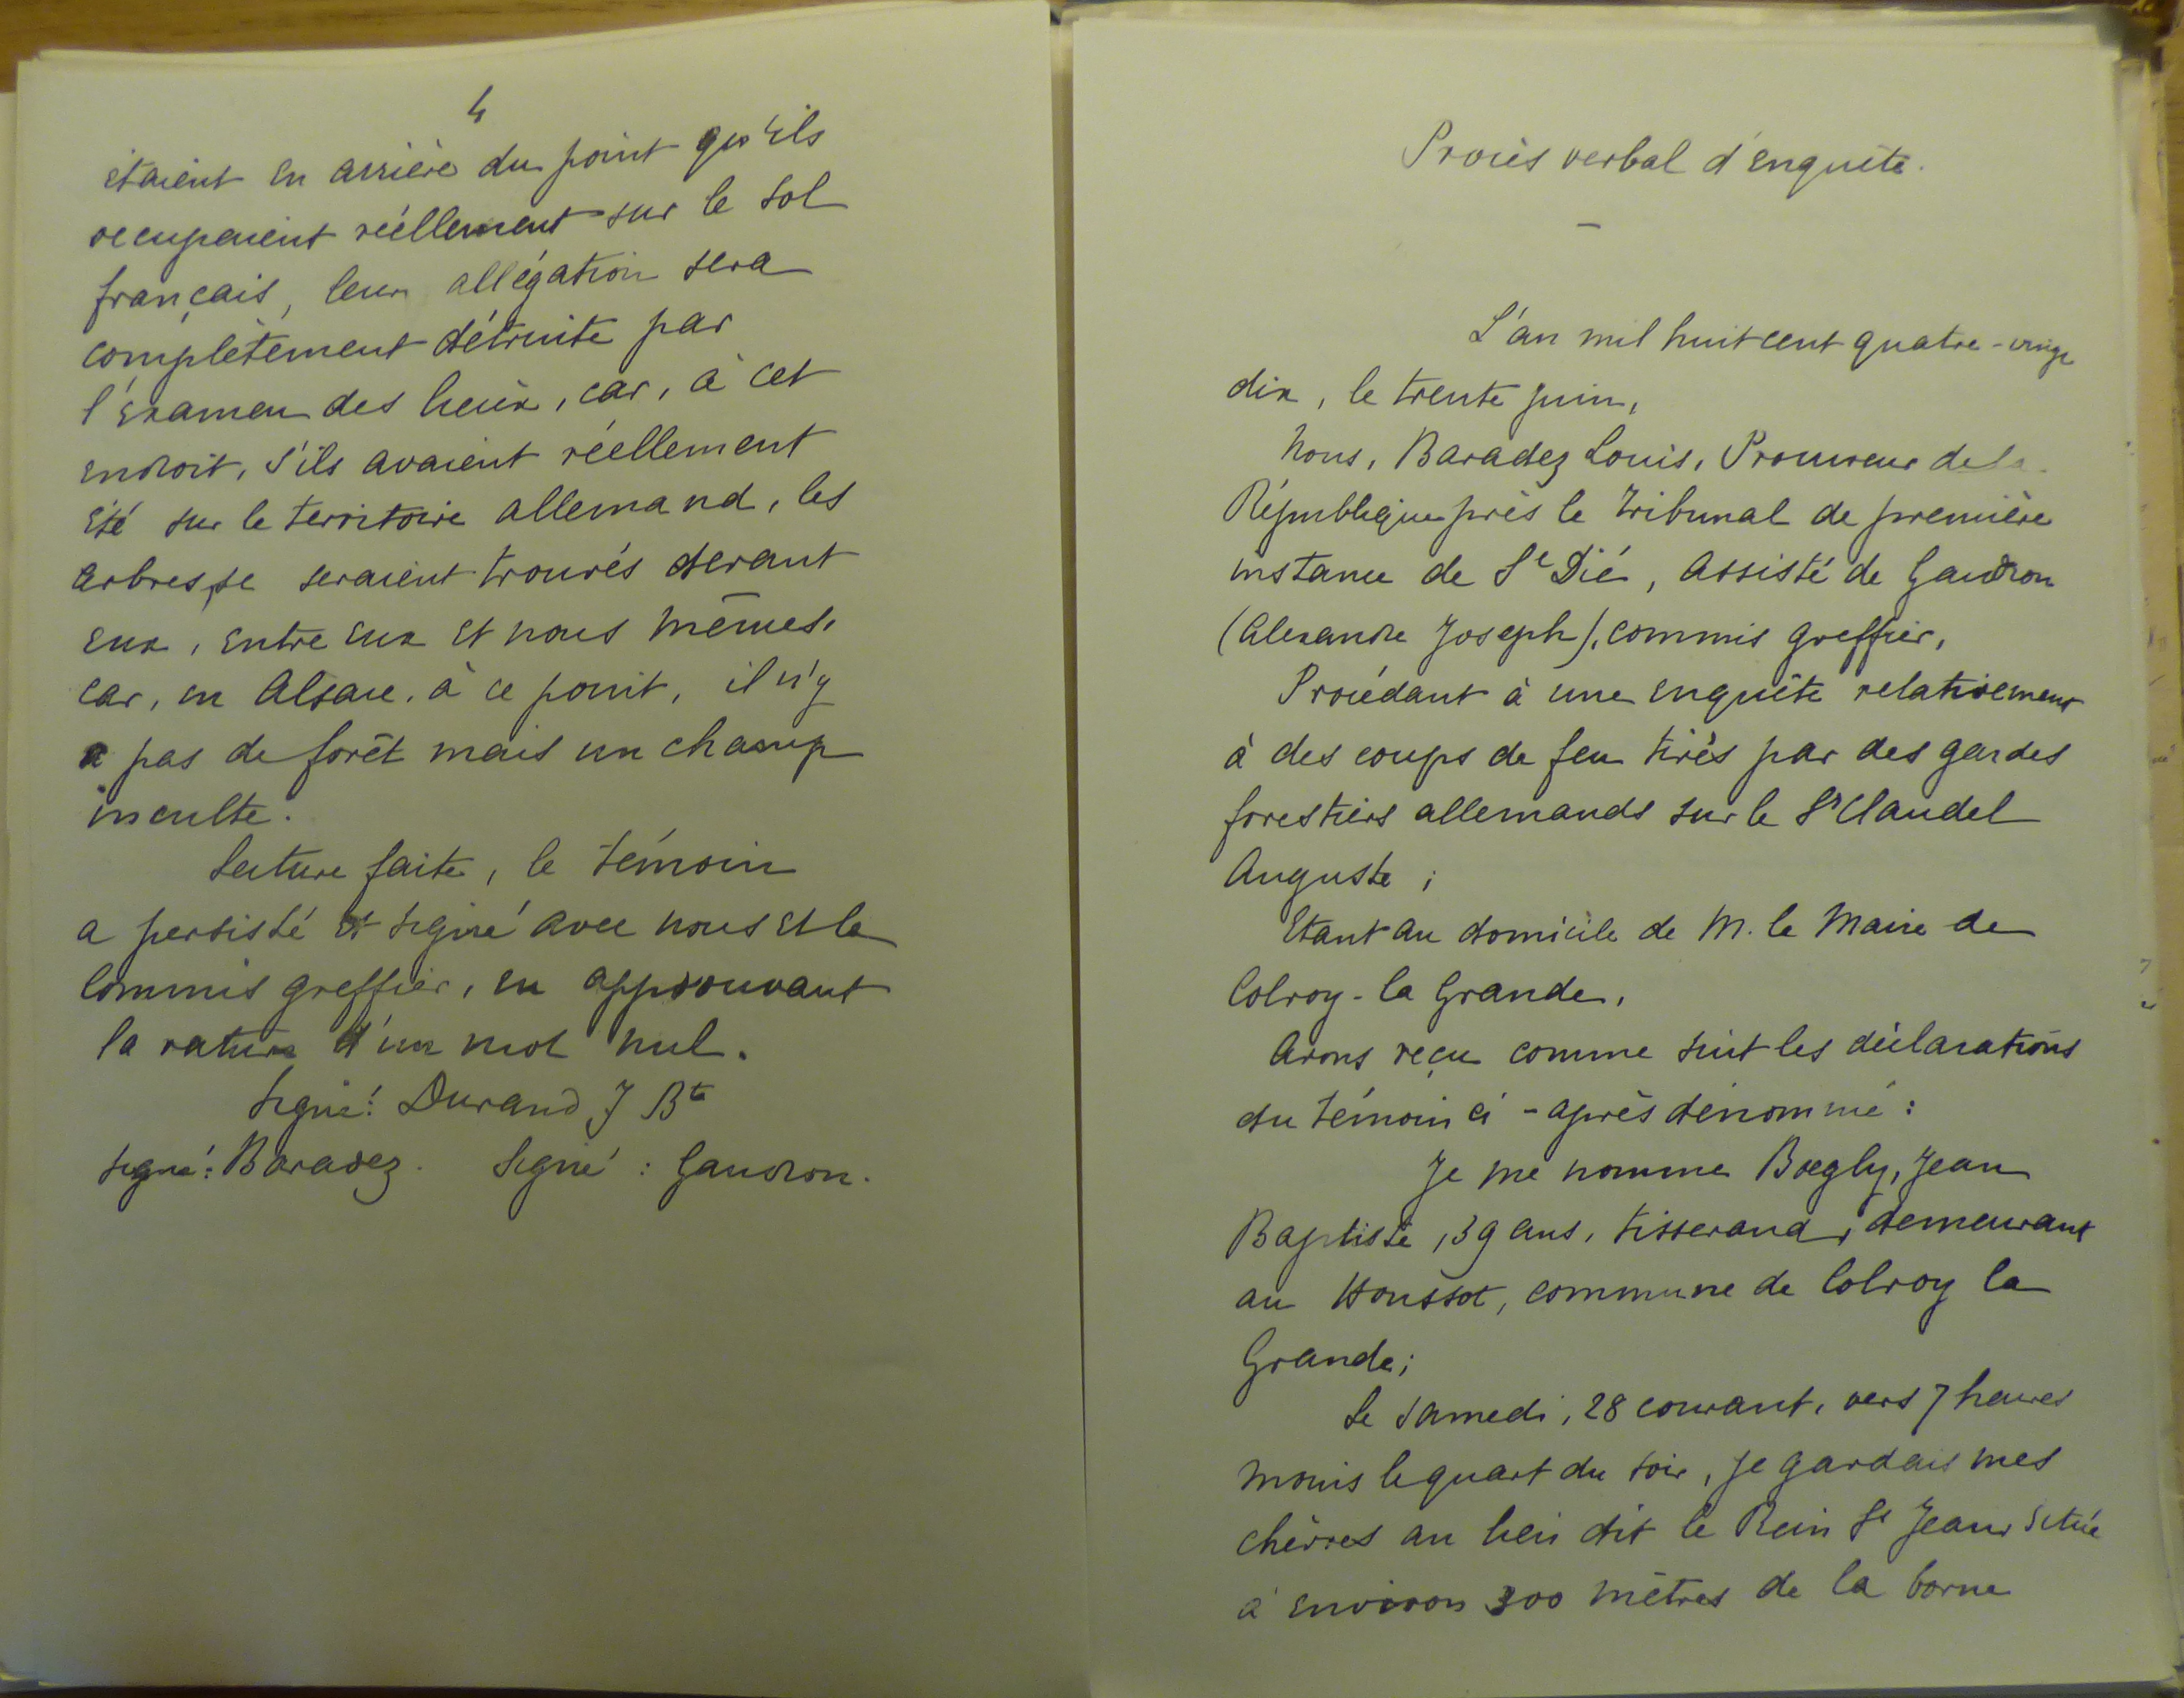 4
étaient en arrière du point qu'ils
occupaient réellement sur le sol
français, leur allégation sera
complètement détruite par
l'examen des lieux, car, à cet
endroit, s'ils avaient réellement
été sur le territoire allemand, les
arbres se seraient trouvés devant
eux, entre eux et nous mêmes,
car, en Alsace, à ce point, il n'y
a pas de forêt mais un champ
inculte.
Lecture faite, le témoin
a persisté et signé avec nous et le
Commis greffier, en approuvant
la rature d'un mot nul.
Signé: Durand J Bte
Signé: Baradez. Signé: Gaudron.
Procès verbal d'enquête.
—
L'an mil huit cent quatre-vingt
dix, le trente juin,
Nous, Baradez Louis, Procureur de la
République près le Tribunal de première
instance de St Dié, assisté de Gaudron
(Alexandre Joseph), commis greffier,
Procédant à une enquête relativement
à des coups de feu tirés par des gardes
forestiers allemands sur le Sr Claudel
Auguste;
Etant au domicile de M. le Maire de
Colroy-la Grande,
Avons reçu comme suit les déclarations
du témoin ci-après dénommé:
Je me nomme Boegly, Jean
Baptiste, 39 ans, tisserand, demeurant
au Houssot, commune de Colroy la
Grande;
Le samedi, 28 courant, vers 7 heures
moins le quart du soir, je gardais mes
chèvres au lieu dit le Rein St Jean, situé
à environ 300 mètres de la borne